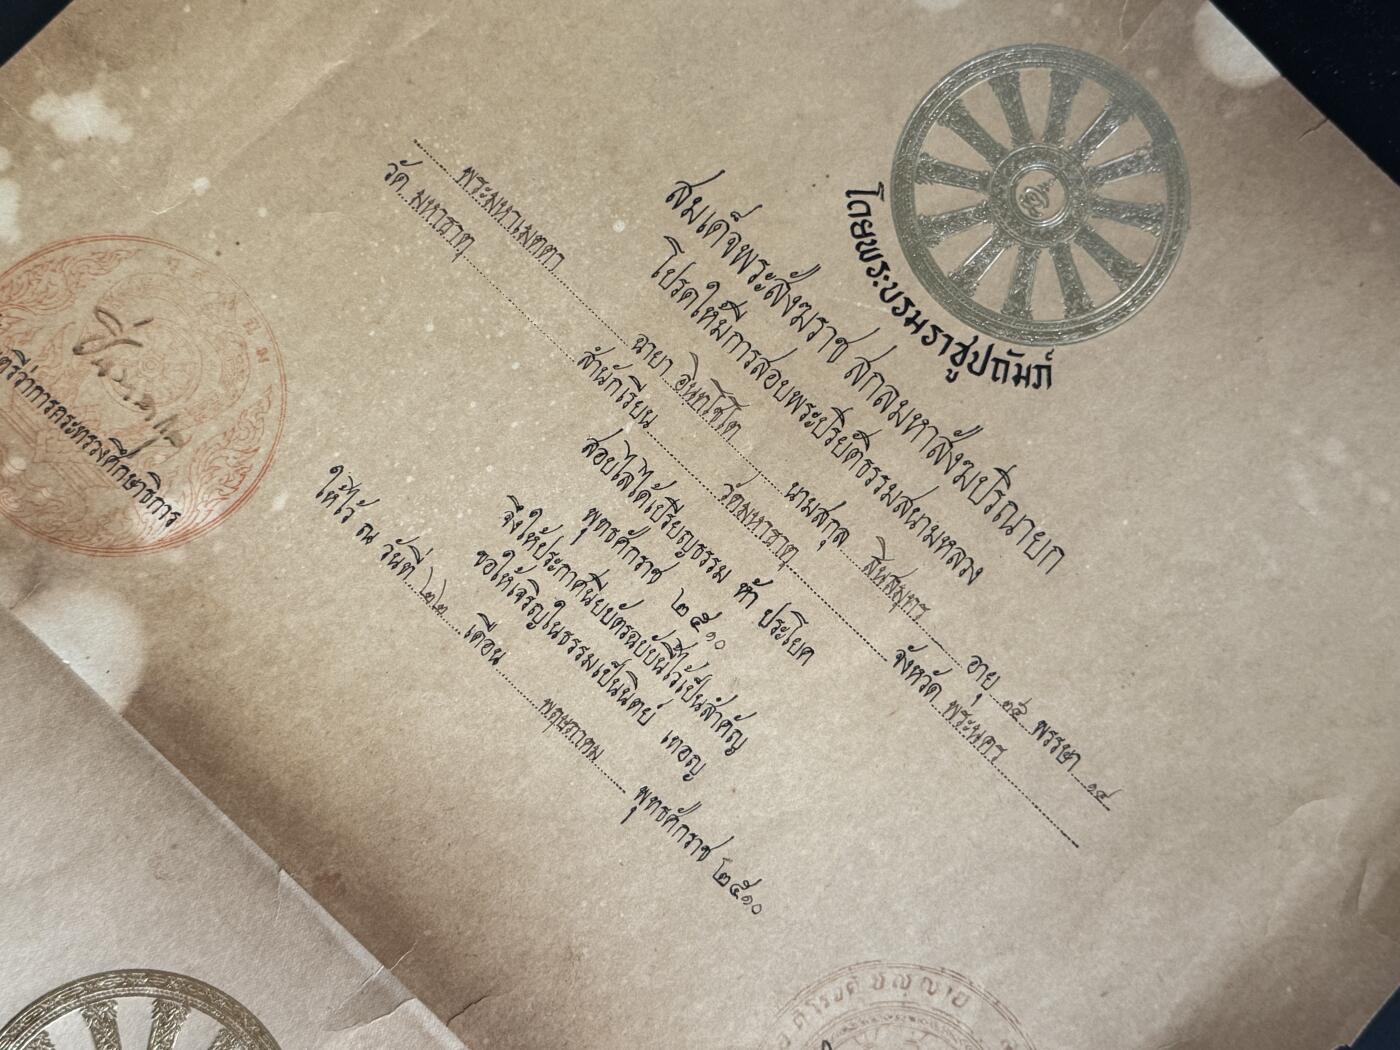 โดยพระบรมราชูปถัมภ์
สมเด็จพระสังฆราช สกลมหาสังฆปริณายก
โปรดให้มีการสอบพระปริยัติธรรมสนามหลวง
พระมหาเมตตา ฉายา อินฺทโชโต นามสกุล สินสมุทร อายุ ๓๕ พรรษา ๑๔
วัด มหาธาตุ สำนักเรียน วัดมหาธาตุ จังหวัด พระนคร
สอบไล่ได้เปรียญธรรม ห้า ประโยค
พุทธศักราช ๒๕๑๐
จึงให้ประกาศนียบัตรฉบับนี้ไว้เป็นสำคัญ
ขอให้เจริญในธรรมเป็นนิตย์ เทอญ
ให้ไว้ ณ วันที่ ๒๒ เดือน พฤษภาคม พุทธศักราช ๒๕๑๐
ตรีว่าการกระทรวงศึกษาธิการ